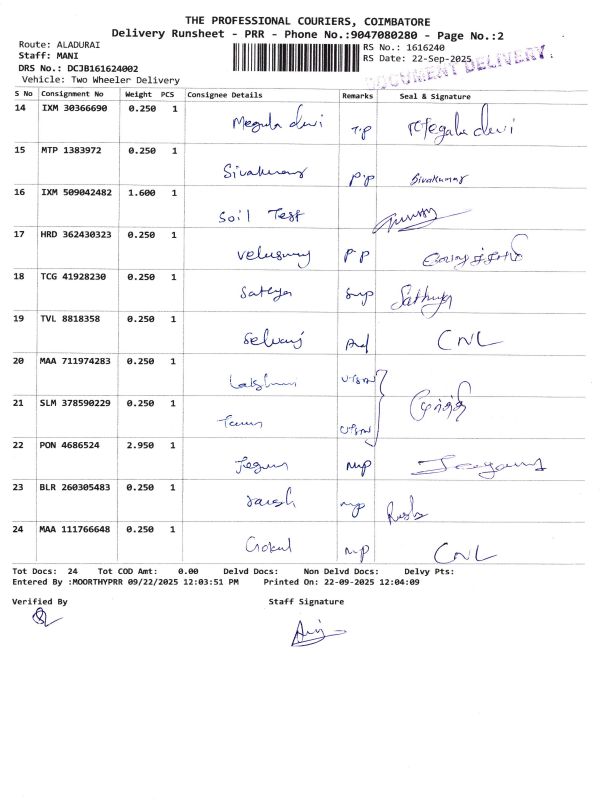 THE PROFESSIONAL COURIERS, COIMBATORE
Delivery Runsheet - PRR - Phone No.:9047080280 - Page No.:2
Route: ALADURAI
Staff: MANI
DRS No.: DCJB161624002
Vehicle: Two Wheeler Delivery
RS No.: 1616240
RS Date: 22-Sep-2025
DOCUMENT DELIVERY.
S No Consignment No Weight PCS Consignee Details Remarks Seal & Signature
14 IXM 30366690 0.250 1 Megala devi T.P Megala devi
15 MTP 1383972 0.250 1 Sivakumar P.P Sivakumar
16 IXM 509042482 1.600 1 Soil Test
17 HRD 362430323 0.250 1 Velusamy P.P
18 TCG 41928230 0.250 1 Sathya Sathya
19 TVL 8818358 0.250 1 Selvaraj CNL
20 MAA 711974283 0.250 1 Lakshmi
21 SLM 378590229 0.250 1
22 PON 4686524 2.950 1
23 BLR 260305483 0.250 1
24 MAA 111766648 0.250 1 Gokul CNL
Tot Docs: 24 Tot COD Amt: 0.00 Delvd Docs: Non Delvd Docs: Delvy Pts:
Entered By :MOORTHYPRR 09/22/2025 12:03:51 PM Printed On: 22-09-2025 12:04:09
Verified By Staff Signature